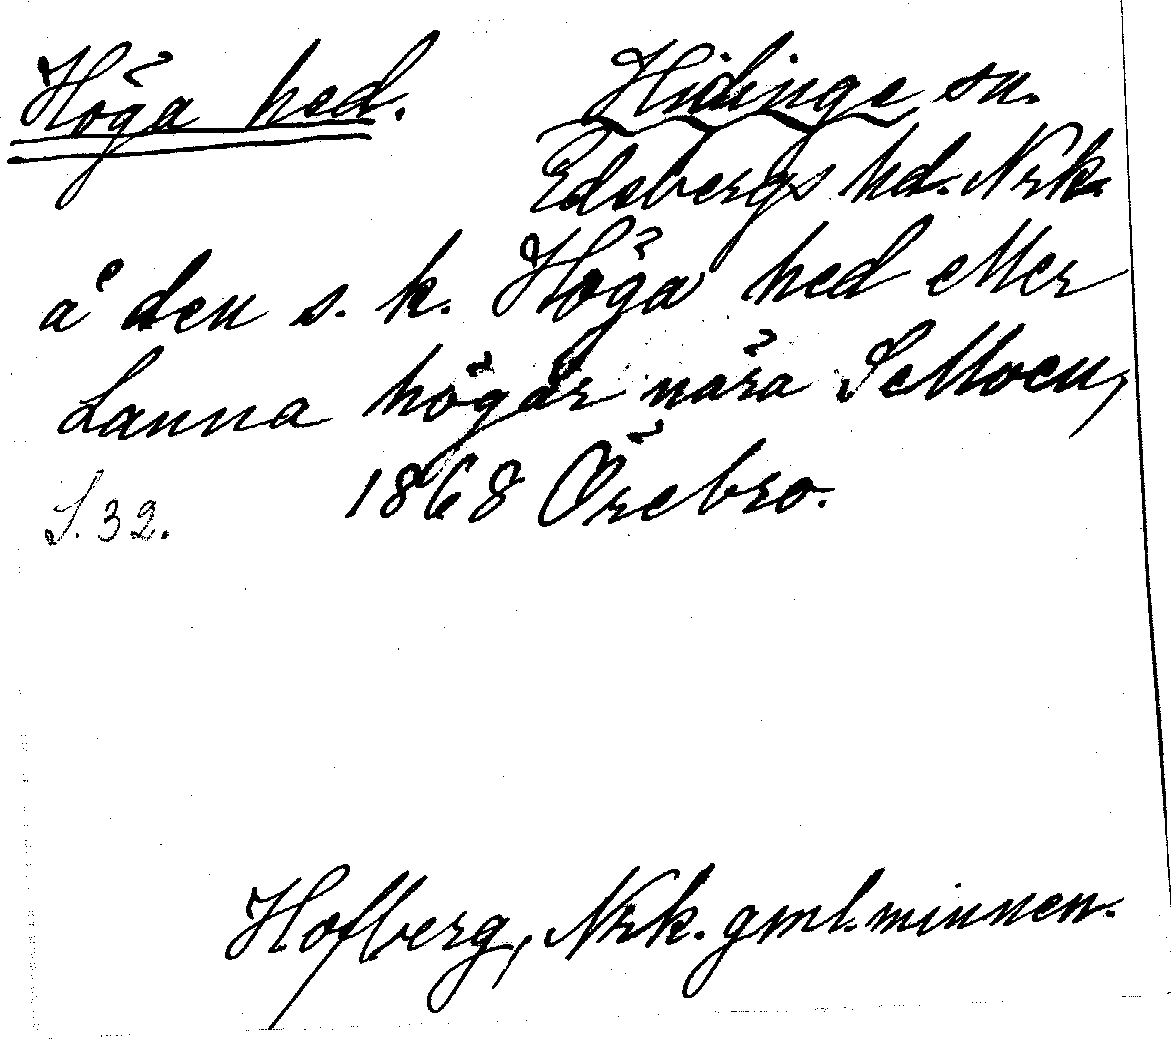 Höga hed. Hidinge sn.
Edsbergs hd. Nrk.
å den s. k. Höga hed eller
Lanna högar nära Selboen,
S. 32. 1868 Örebro.
Hofberg, Nrk. gml. minnen.